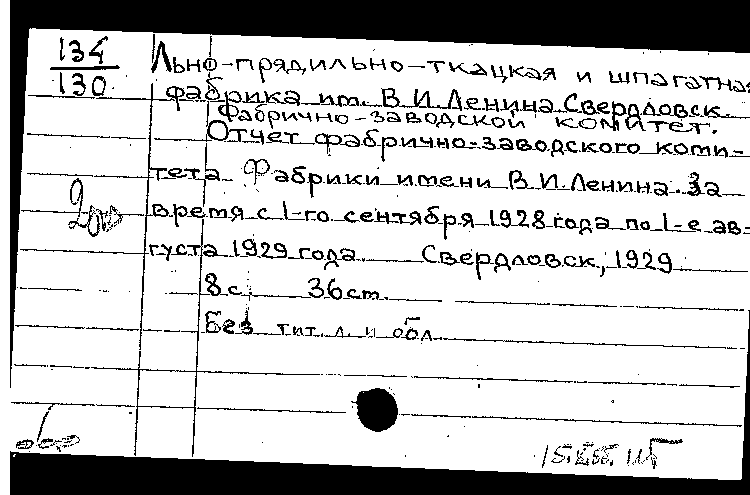 134
130
Льно-прядильно-ткацкая и шпагатная
фабрика им. В.И.Ленина.Свердловск.
Фабрично-заводской комитет.
Отчет фабрично-заводского коми-
тета Фабрики имени В.И.Ленина. За
время с 1-го сентября 1928 года по 1-е ав-
густа 1929 года. Свердловск, 1929
8с. 36см.
Без тит. л. и обл.